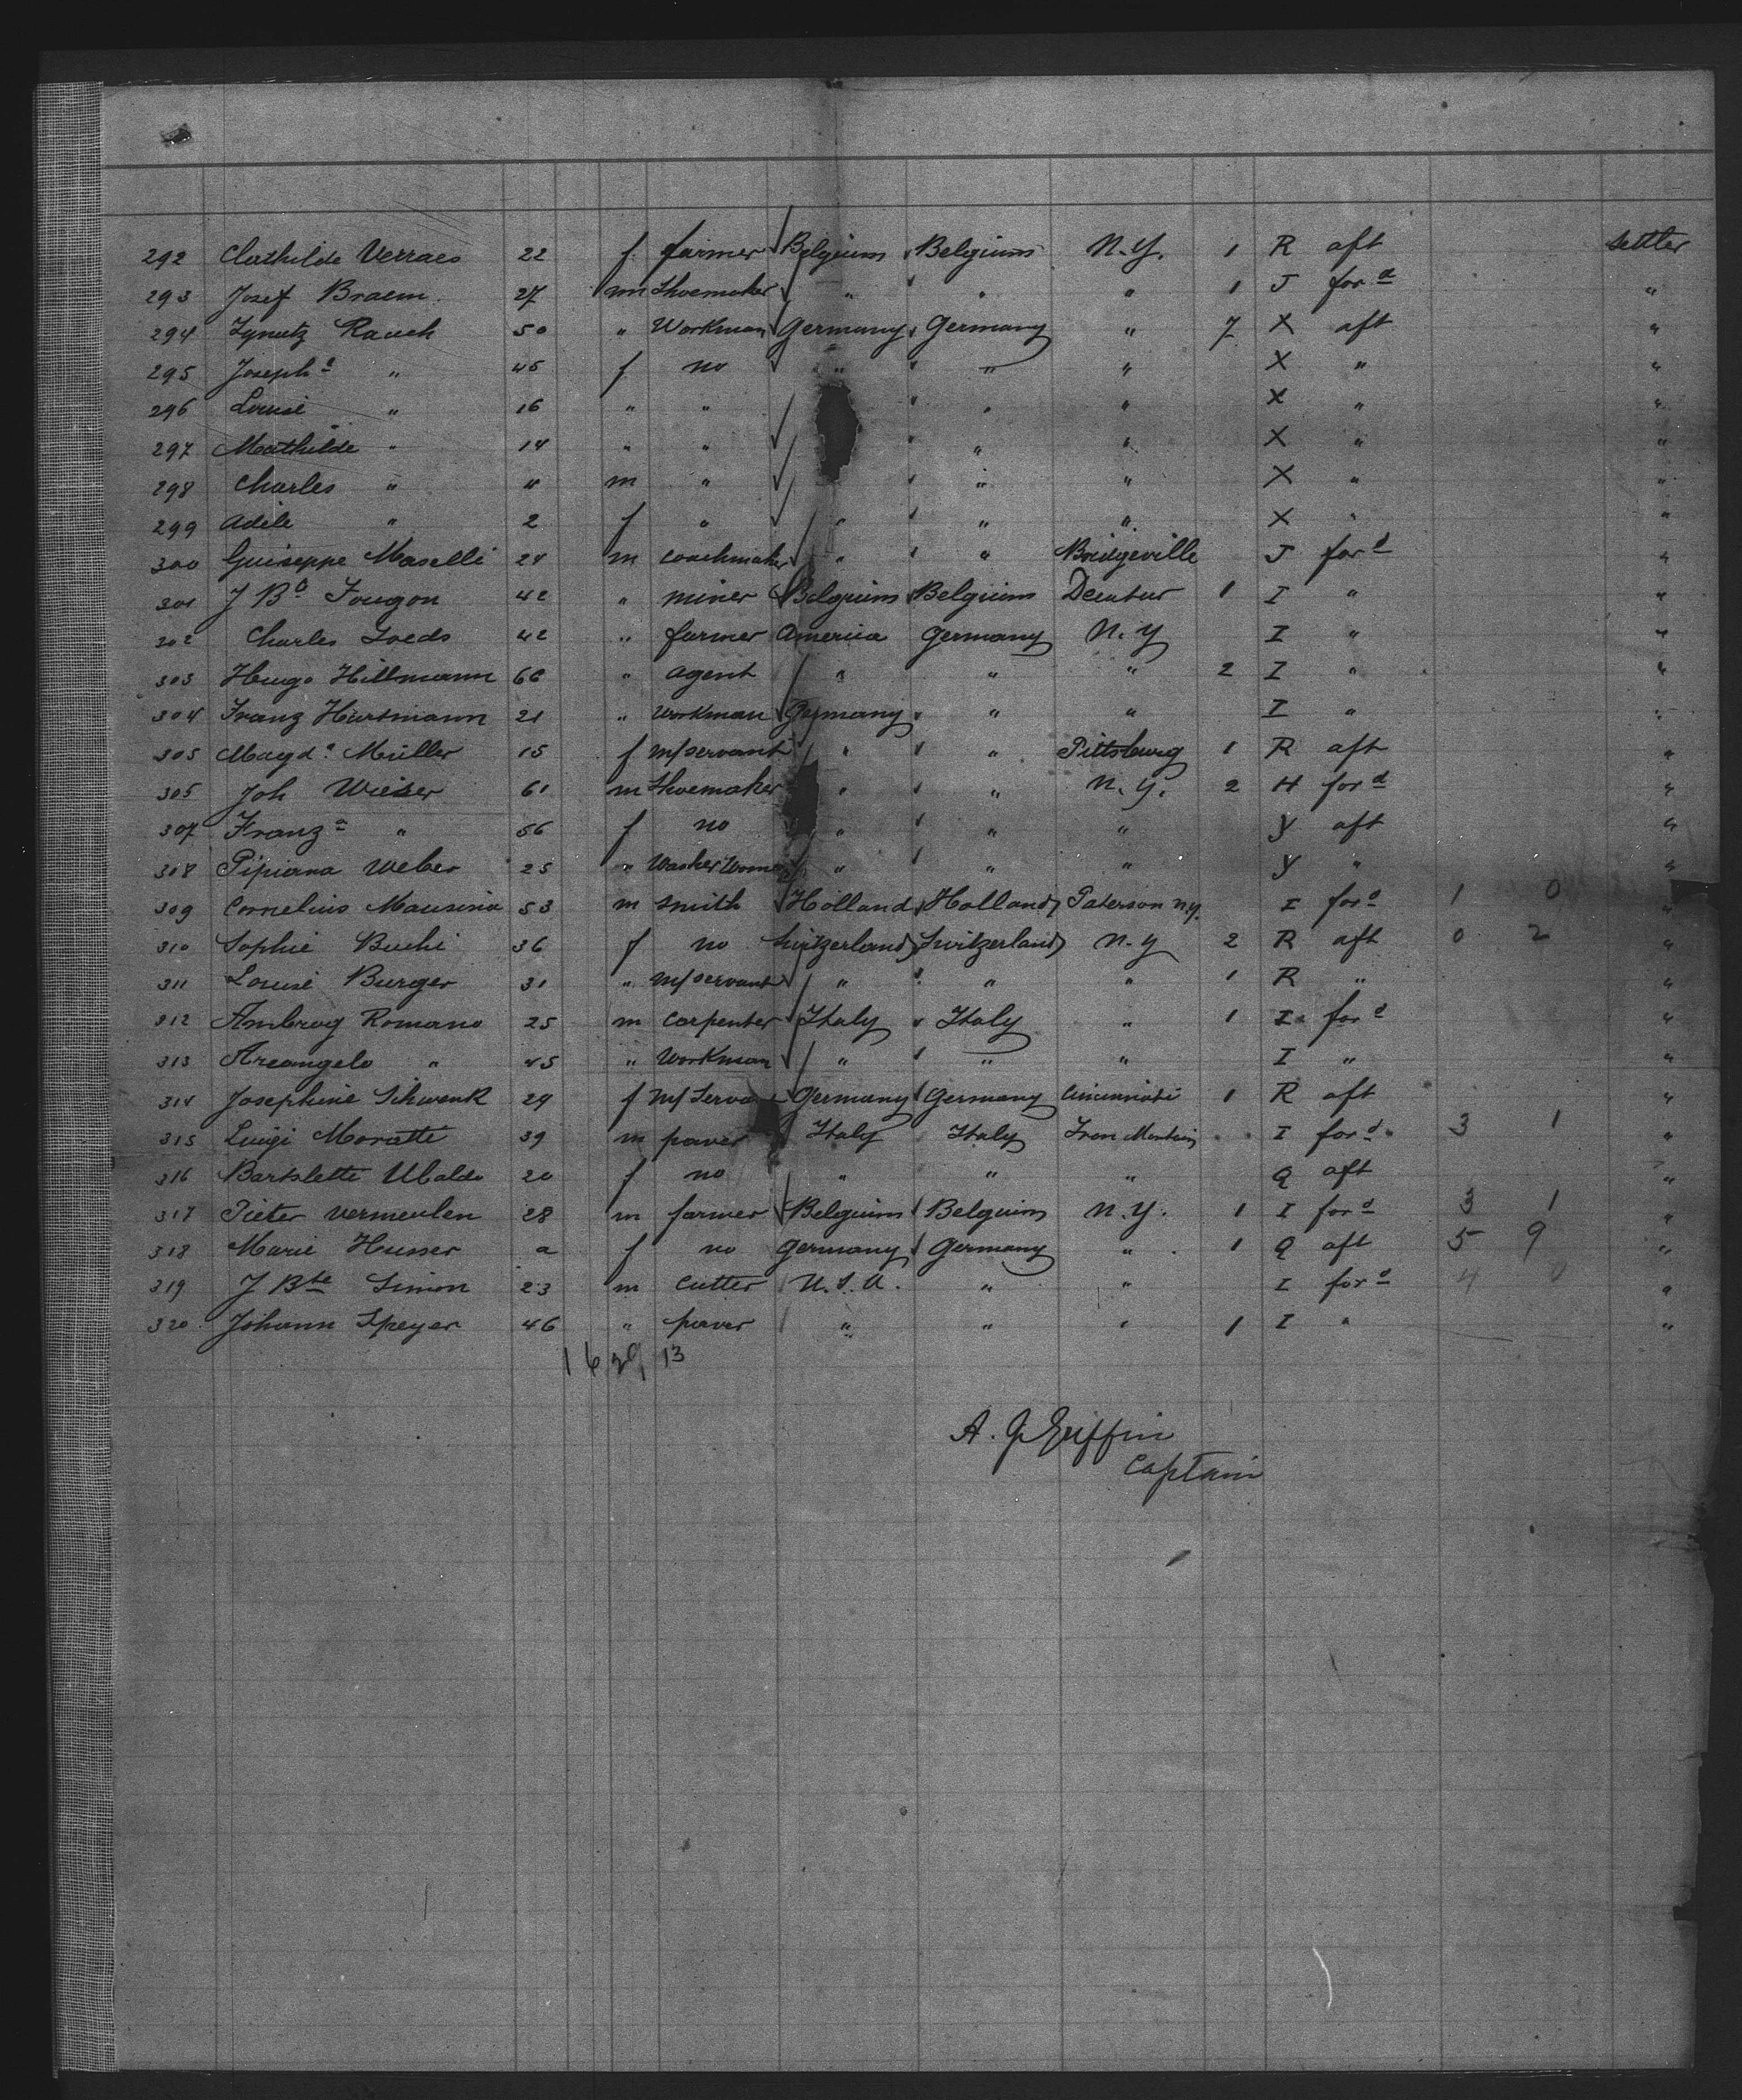 292 Clothilde Verraes 22 f farmer Belgium Belgium N.Y. 1 R aft settler
293 Josef Braem 27 m Shoemaker " " " 1 J for d "
294 Ignatz Rauch 50 " Workman Germany Germany " 7 X aft "
295 Joseph a " 45 f no " " " X " "
296 Louise " 16 " " " " X " "
297 Mathilde " 14 " " " " X " "
298 Charles " " m " " " X " "
299 Adele " 2 f " " " " X " "
300 Guiseppe Maselli 24 m coachmaker " " Bridgeville J for d "
301 J Bte Fougon 42 " miner Belgium Belgium Decatur 1 I " "
302 Charles 42 " farmer America Germany N.Y I " "
303 Hugo Hillmann 66 " agent " " " 2 I " "
304 Franz Hartmann 21 " workman Germany " " I " "
305 Magd a Müller 15 f m/servant " " Pittsburg 1 R aft "
305 Joh Wieser 61 m Shoemaker " " N.Y. 2 H for d "
307 Franz a " 56 f no " " " Y aft "
308 Pipiana Weber 25 " Washer Woman " " " Y " "
309 Cornelius 53 m smith Holland Holland Paterson N.Y. I for d 1 0 "
310 Sophie Buchi 36 f no Switzerland Switzerland N.Y 2 R aft 0 2 "
311 Louise Burger 31 " m/servant " " " 1 R " "
312 Ambrog Romano 25 m carpenter Italy Italy " 1 I for d "
313 Arcangelo " 45 " Workman " " " I " "
314 Josephine Schwenk 24 f m/Serva Germany Germany Cincinnati 1 R aft "
315 Luigi Moratti 39 m paver Italy Italy Iron Mountain I for d 3 1 "
316 Ubaldo 20 f no " " " Q aft "
317 Pieter Vermeulen 28 m farmer Belgium Belgium N.Y. 1 I for d 3 1 "
318 Marie Husser a f no Germany Germany " 1 Q aft 5 9 "
319 J Bte Simon 23 m cutter U.S.A. " " I for d 4 0 "
320 Johann Speyer 46 " paver " " " 1 I " "
1 6 29 13
A. J Griffin
Captain